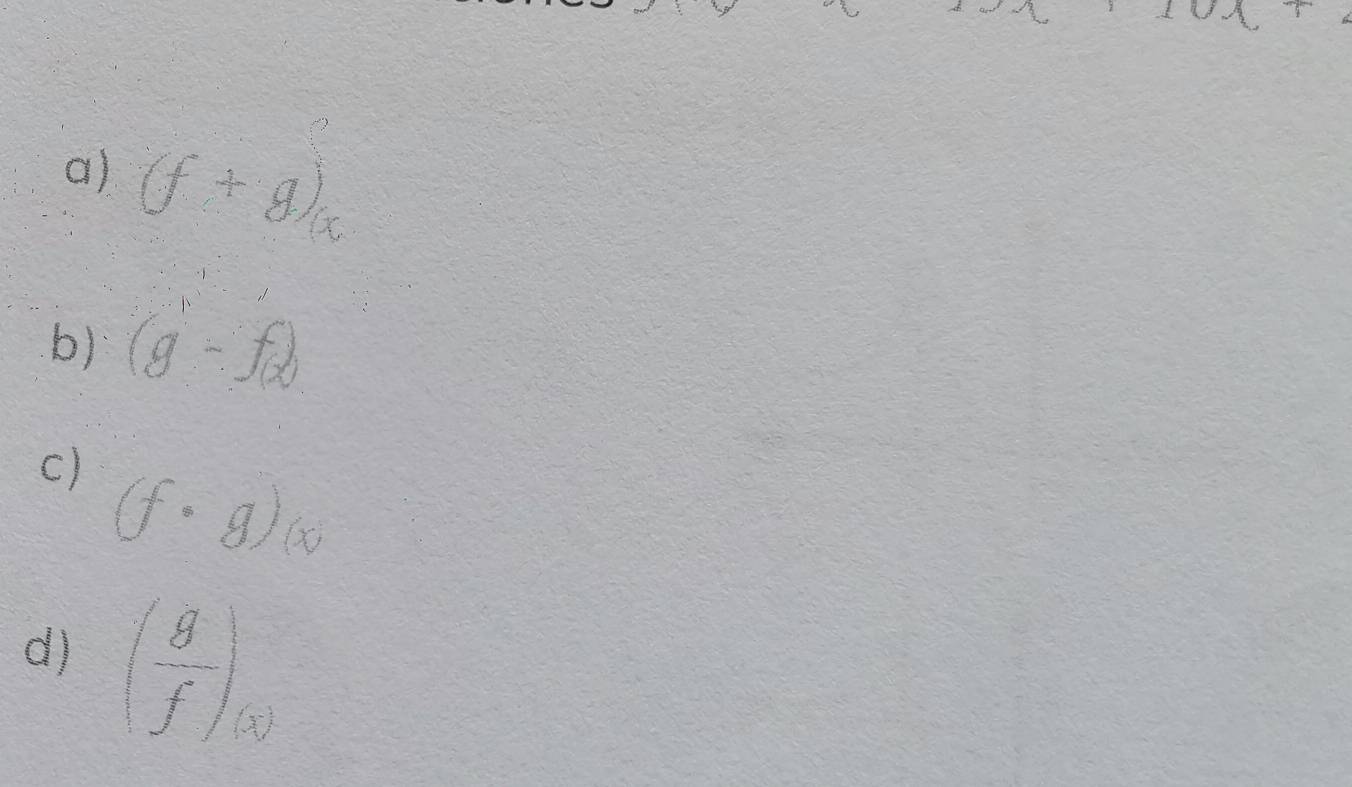 a) (f + g)(x
b) (g - f)(x)
c) (f • g)(x)
d) (g/f)(x)